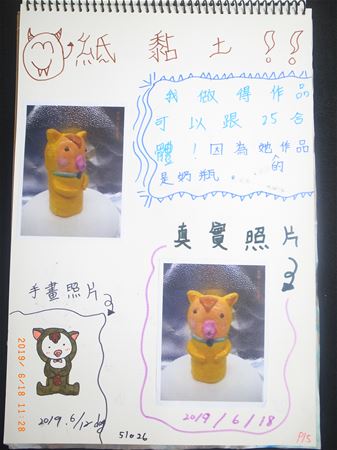 紙黏土!!
我做得作品
可以跟25合
體!因為她的作品
是奶瓶。
真實照片
手畫照片
2019/6/18 11:28
2019.6/12
2019/6/18
51026
P15